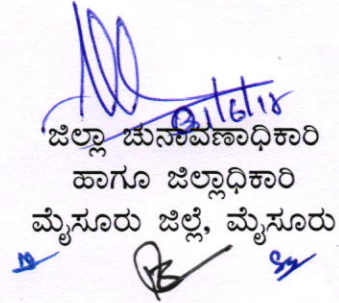 ಜಿಲ್ಲಾ ಚುನಾವಣಾಧಿಕಾರಿ
ಹಾಗೂ ಜಿಲ್ಲಾಧಿಕಾರಿ
ಮೈಸೂರು ಜಿಲ್ಲೆ, ಮೈಸೂರು